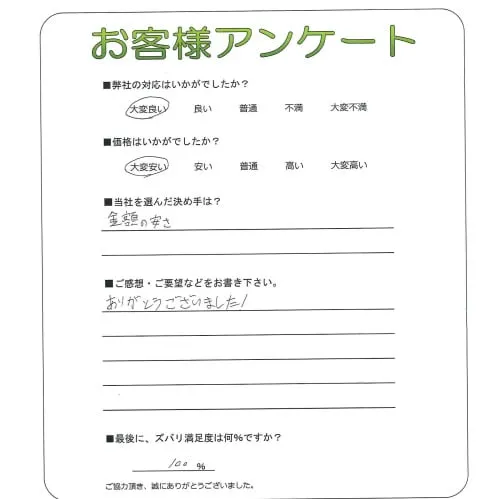 お客様アンケート
■弊社の対応はいかがでしたか？
大変良い 良い 普通 不満 大変不満
■価格はいかがでしたか？
大変安い 安い 普通 高い 大変高い
■当社を選んだ決め手は？
金額の安さ
■ご感想・ご要望などをお書き下さい。
ありがとうございました！
■最後に、ズバリ満足度は何％ですか？
100 ％
ご協力頂き、誠にありがとうございました。